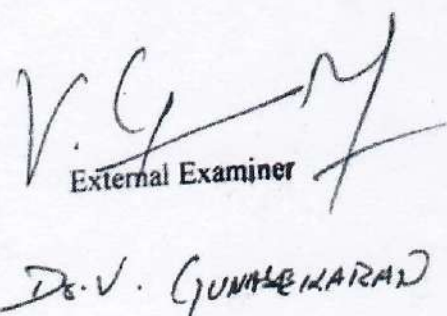 External Examiner
Dr. V. GUNASEKARAN